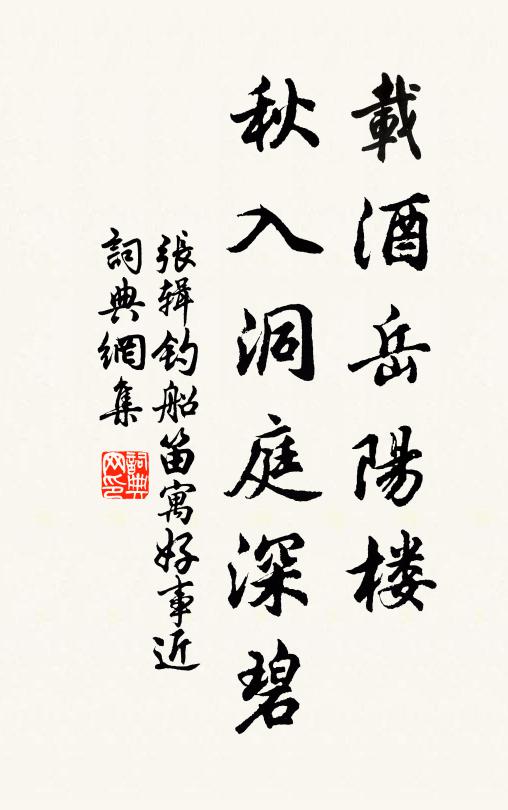 載酒岳陽楼
秋入洞庭深碧
張辑钓船笛寓好事近
詞典網集
詞典网印